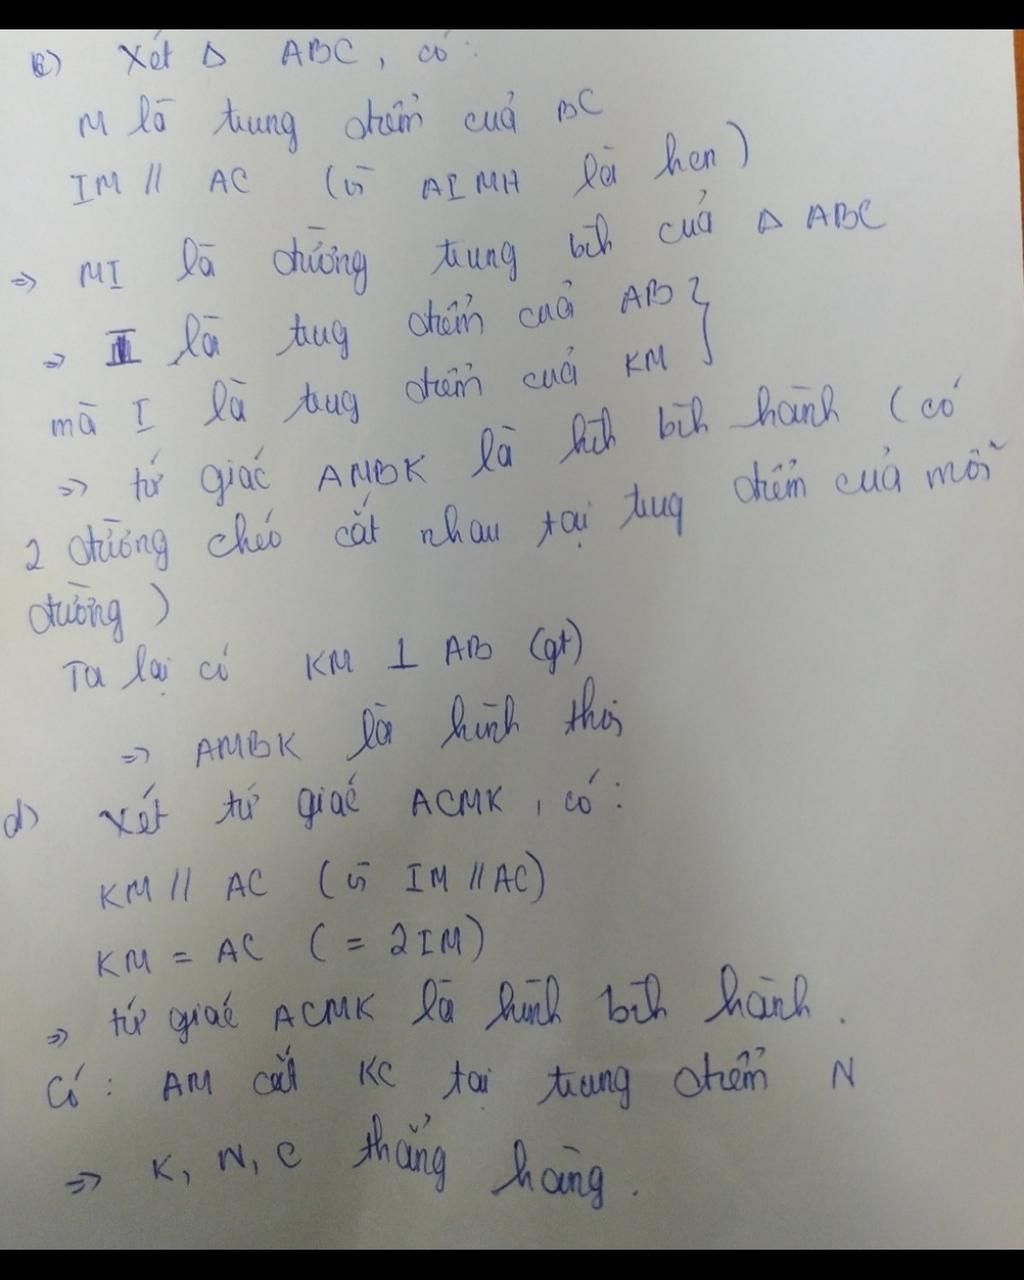 c) Xét Δ ABC, có:
M là trung điểm của BC
IM // AC (vì AIMH là hcn)
=> MI là đường trung bìh của Δ ABC
=> I là tug điểm của AB }
mà I là tug điểm của KM
=> tứ giác AMBK là hìh bìh hành (có
2 đường chéo cắt nhau tại tug điểm của mỗi
đường)
Ta lại có KM ⊥ AB (gt)
=> AMBK là hình thoi
d) Xét tứ giác ACMK, có:
KM // AC (vì IM // AC)
KM = AC (= 2IM)
=> tứ giác ACMK là hình bìh hành.
Có: AM cắt KC tại trung điểm N
=> K, N, C thẳng hàng.